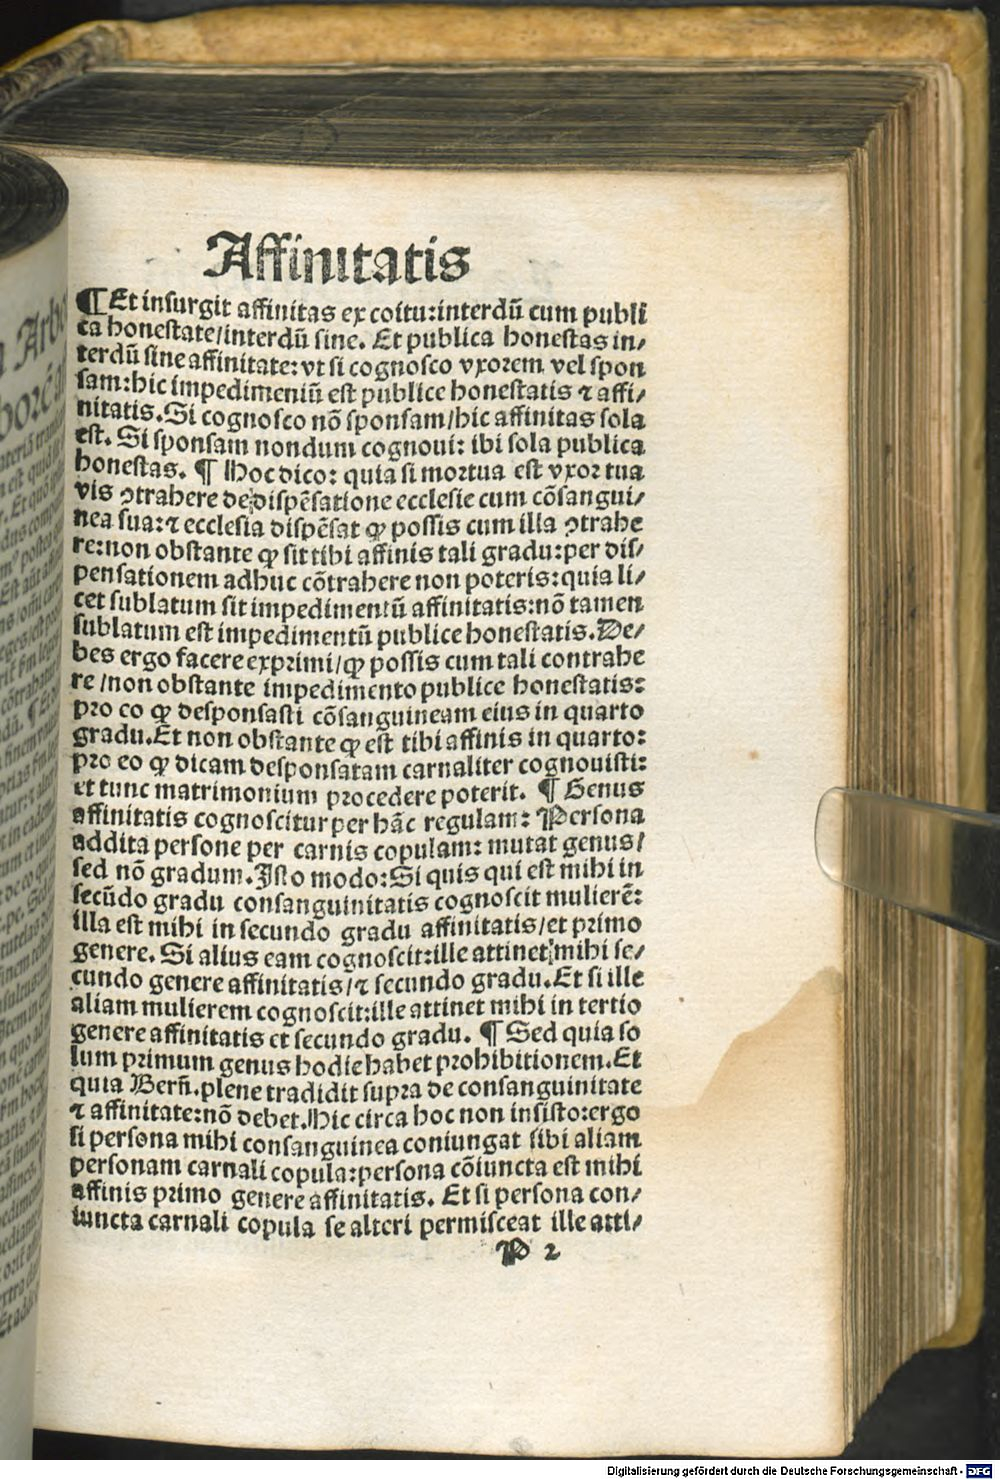 Affinitatis
¶ Et insurgit affinitas ex coitu: interdū cum publi
ca honestate/interdū sine. Et publica honestas in/
terdū sine affinitate: vt si cognosco vxorem vel spon
sam: hic impedimeniū est publice honestatis ⁊ affi/
nitatis. Si cognosco nō sponsam/hic affinitas sola
est. Si sponsam nondum cognoui: ibi sola publica
honestas. ¶ Hoc dico: quia si mortua est vxor tua
vis ꝯtrahere de dispēsatione ecclesie cum cōsangui/
nea sua: ⁊ ecclesia dispēsat ꝙ possis cum illa ꝯtrahe
re: non obstante ꝙ sit tibi affinis tali gradu: per dis/
pensationem adhuc cōtrahere non poteris: quia li/
cet sublatum sit impedimentū affinitatis: nō tamen
sublatum est impedimentū publice honestatis. De/
bes ergo facere exprimi/ꝙ possis cum tali contrahe
re/non obstante impedimento publice honestatis:
pro eo ꝙ desponsasti cōsanguineam eius in quarto
gradu. Et non obstante ꝙ est tibi affinis in quarto:
pro eo ꝙ dicam desponsatam carnaliter cognouisti:
et tunc matrimonium procedere poterit. ¶ Genus
affinitatis cognoscitur per hāc regulam: Persona
addita persone per carnis copulam: mutat genus/
sed nō gradum. Isto modo: Si quis qui est mihi in
secūdo gradu consanguinitatis cognoscit mulierē:
illa est mihi in secundo gradu affinitatis/et primo
genere. Si alius eam cognoscit: ille attinet mihi se/
cundo genere affinitatis/⁊ secundo gradu. Et si ille
aliam mulierem cognoscit: ille attinet mihi in tertio
genere affinitatis et secundo gradu. ¶ Sed quia so
lum primum genus hodie habet prohibitionem. Et
quia Berñ. plene tradidit supra de consanguinitate
⁊ affinitate: nō debet. Hic circa hoc non insisto: ergo
si persona mihi consanguinea coniungat sibi aliam
personam carnali copula: persona cōiuncta est mihi
affinis primo genere affinitatis. Et si persona con/
iuncta carnali copula se alteri permisceat ille atti/
P 2
Digitalisierung gefördert durch die Deutsche Forschungsgemeinschaft - DFG